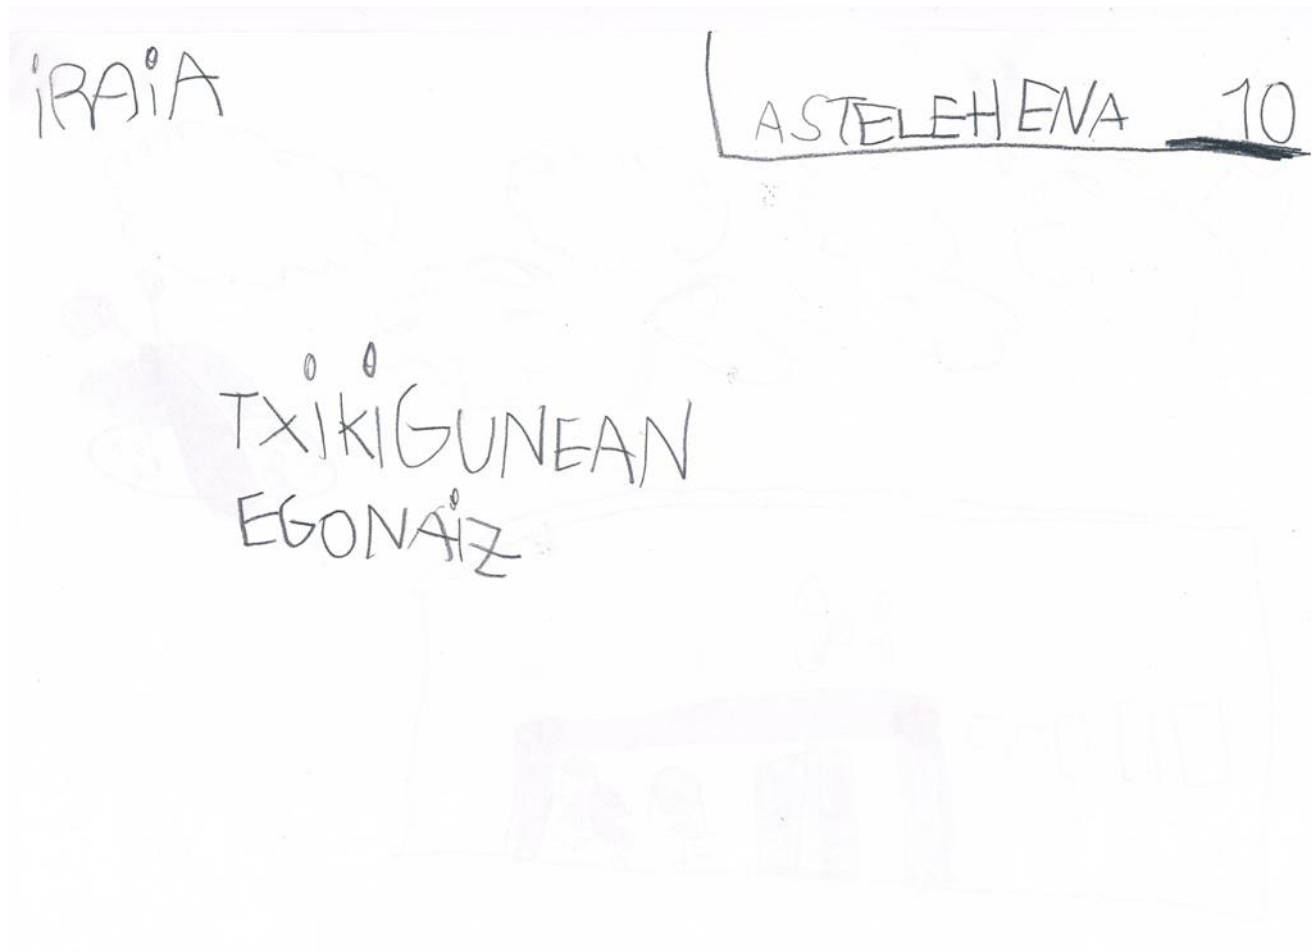 iRAiA
ASTELEHENA 10
TXiKiGUNEAN
EGONAiZ